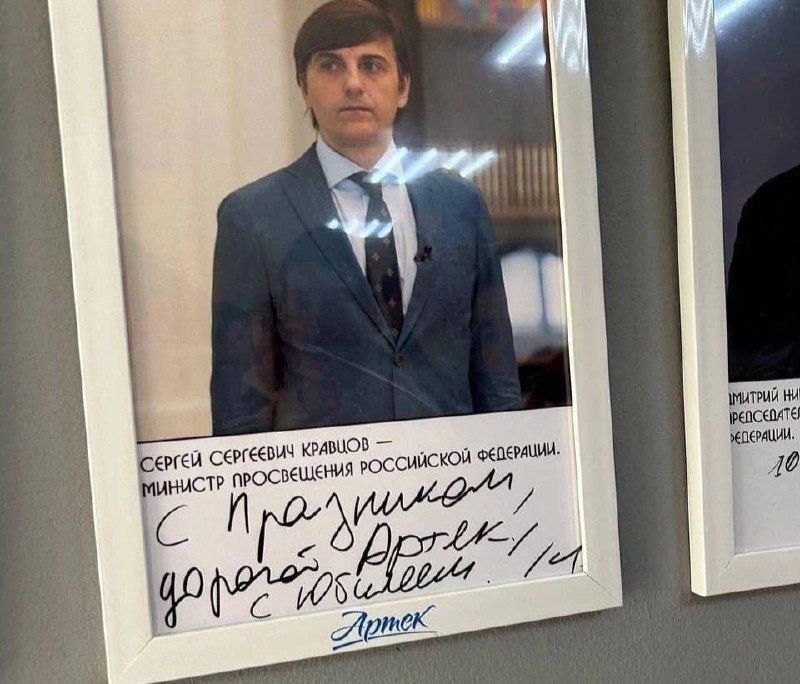 СЕРГЕЙ СЕРГЕЕВИЧ КРАВЦОВ —
МИНИСТР ПРОСВЕЩЕНИЯ РОССИЙСКОЙ ФЕДЕРАЦИИ.
С Празником,
дорогой Артек!
С Юбилеем.
Артек
ДМИТРИЙ НИ
ПРЕДСЕДАТЕ
ФЕДЕРАЦИИ.
10